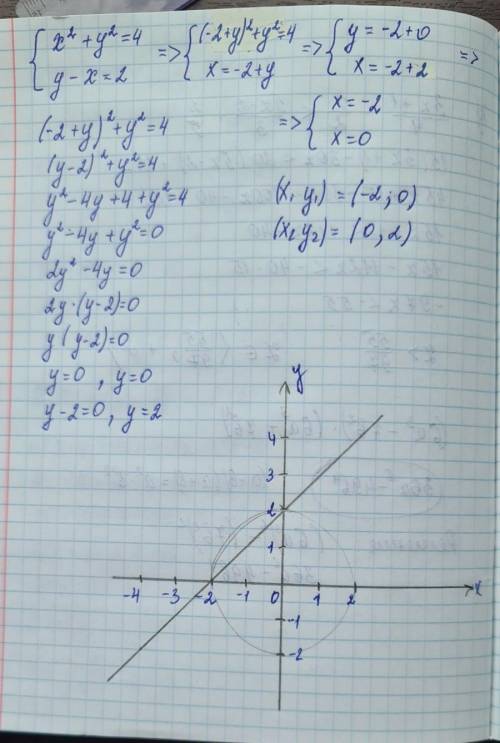 { x² + y² = 4 => { (-2+y)² + y² = 4 => { y = -2+0 =>
{ y - x = 2 { x = -2 + y { x = -2+2
(-2+y)² + y² = 4
=> { x = -2
{ x = 0
(y-2)² + y² = 4
y² - 4y + 4 + y² = 4
(x₁ y₁) = (-2; 0)
y² - 4y + y² = 0
(x₂ y₂) = (0, 2)
2y² - 4y = 0
2y · (y-2) = 0
y (y-2) = 0
y = 0 , y = 0
y - 2 = 0, y = 2
y
4
3
2
1
-4 -3 -2 -1 0 1 2 x
-1
-2